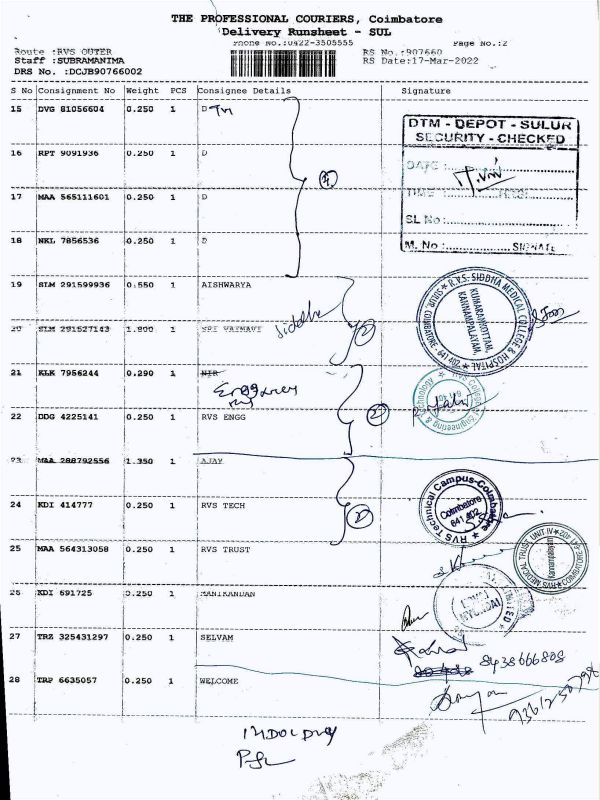 THE PROFESSIONAL COURIERS, Coimbatore
Delivery Runsheet - SUL
Phone No.:0422-3505555 Page No.:2
Route :RVS OUTER RS No.:907660
Staff :SUBRAMANIMA RS Date:17-Mar-2022
DRS No. :DCJB90766002
S No Consignment No Weight PCS Consignee Details Signature
15 DVG 81056604 0.250 1 D
DTM - DEPOT - SULUR
SECURITY - CHECKED
16 RPT 9091936 0.250 1 D
DATE :
TIME :
17 MAA 565111601 0.250 1 D
SL No :
18 NKL 7856536 0.250 1 D
M. No : SIGNATE
19 SLM 291599936 0.550 1 AISHWARYA
R.V.S. SIDDHA MEDICAL COLLEGE & HOSPITAL
KUMARAN KOTTAM,
KANNAMPALAYAM,
SULUR, COIMBATORE - 641 402.
Siddha
20 SLM 291527143 1.800 1 SRI VAIMAVI
21 KLK 7956244 0.290 1 NIR
RVS College of Engineering & Technology
22 DDG 4225141 0.250 1 RVS ENGG
23 MAA 288792556 1.350 1 AJAY
24 KDI 414777 0.250 1 RVS TECH
RVS Technical Campus-Coimbatore
Coimbatore
641 402
25 MAA 564313058 0.250 1 RVS TRUST
26 KDI 691725 0.250 1 MANIKANDAN
27 TRZ 325431297 0.250 1 SELVAM
8438666808
28 TRP 6635057 0.250 1 WELCOME